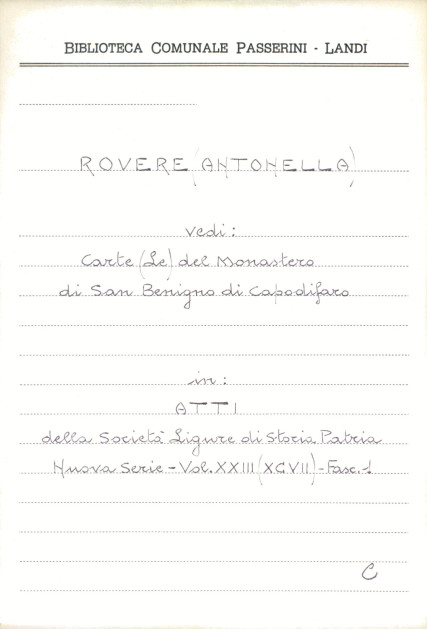 BIBLIOTECA COMUNALE PASSERINI - LANDI
ROVERE (ANTONELLA)
vedi:
Carte (Le) del Monastero
di San Benigno di Capodifaro
in:
ATTI
della Società Ligure di Storia Patria
Nuova Serie - Vol. XXIII (XCVII) - Fasc. I
C